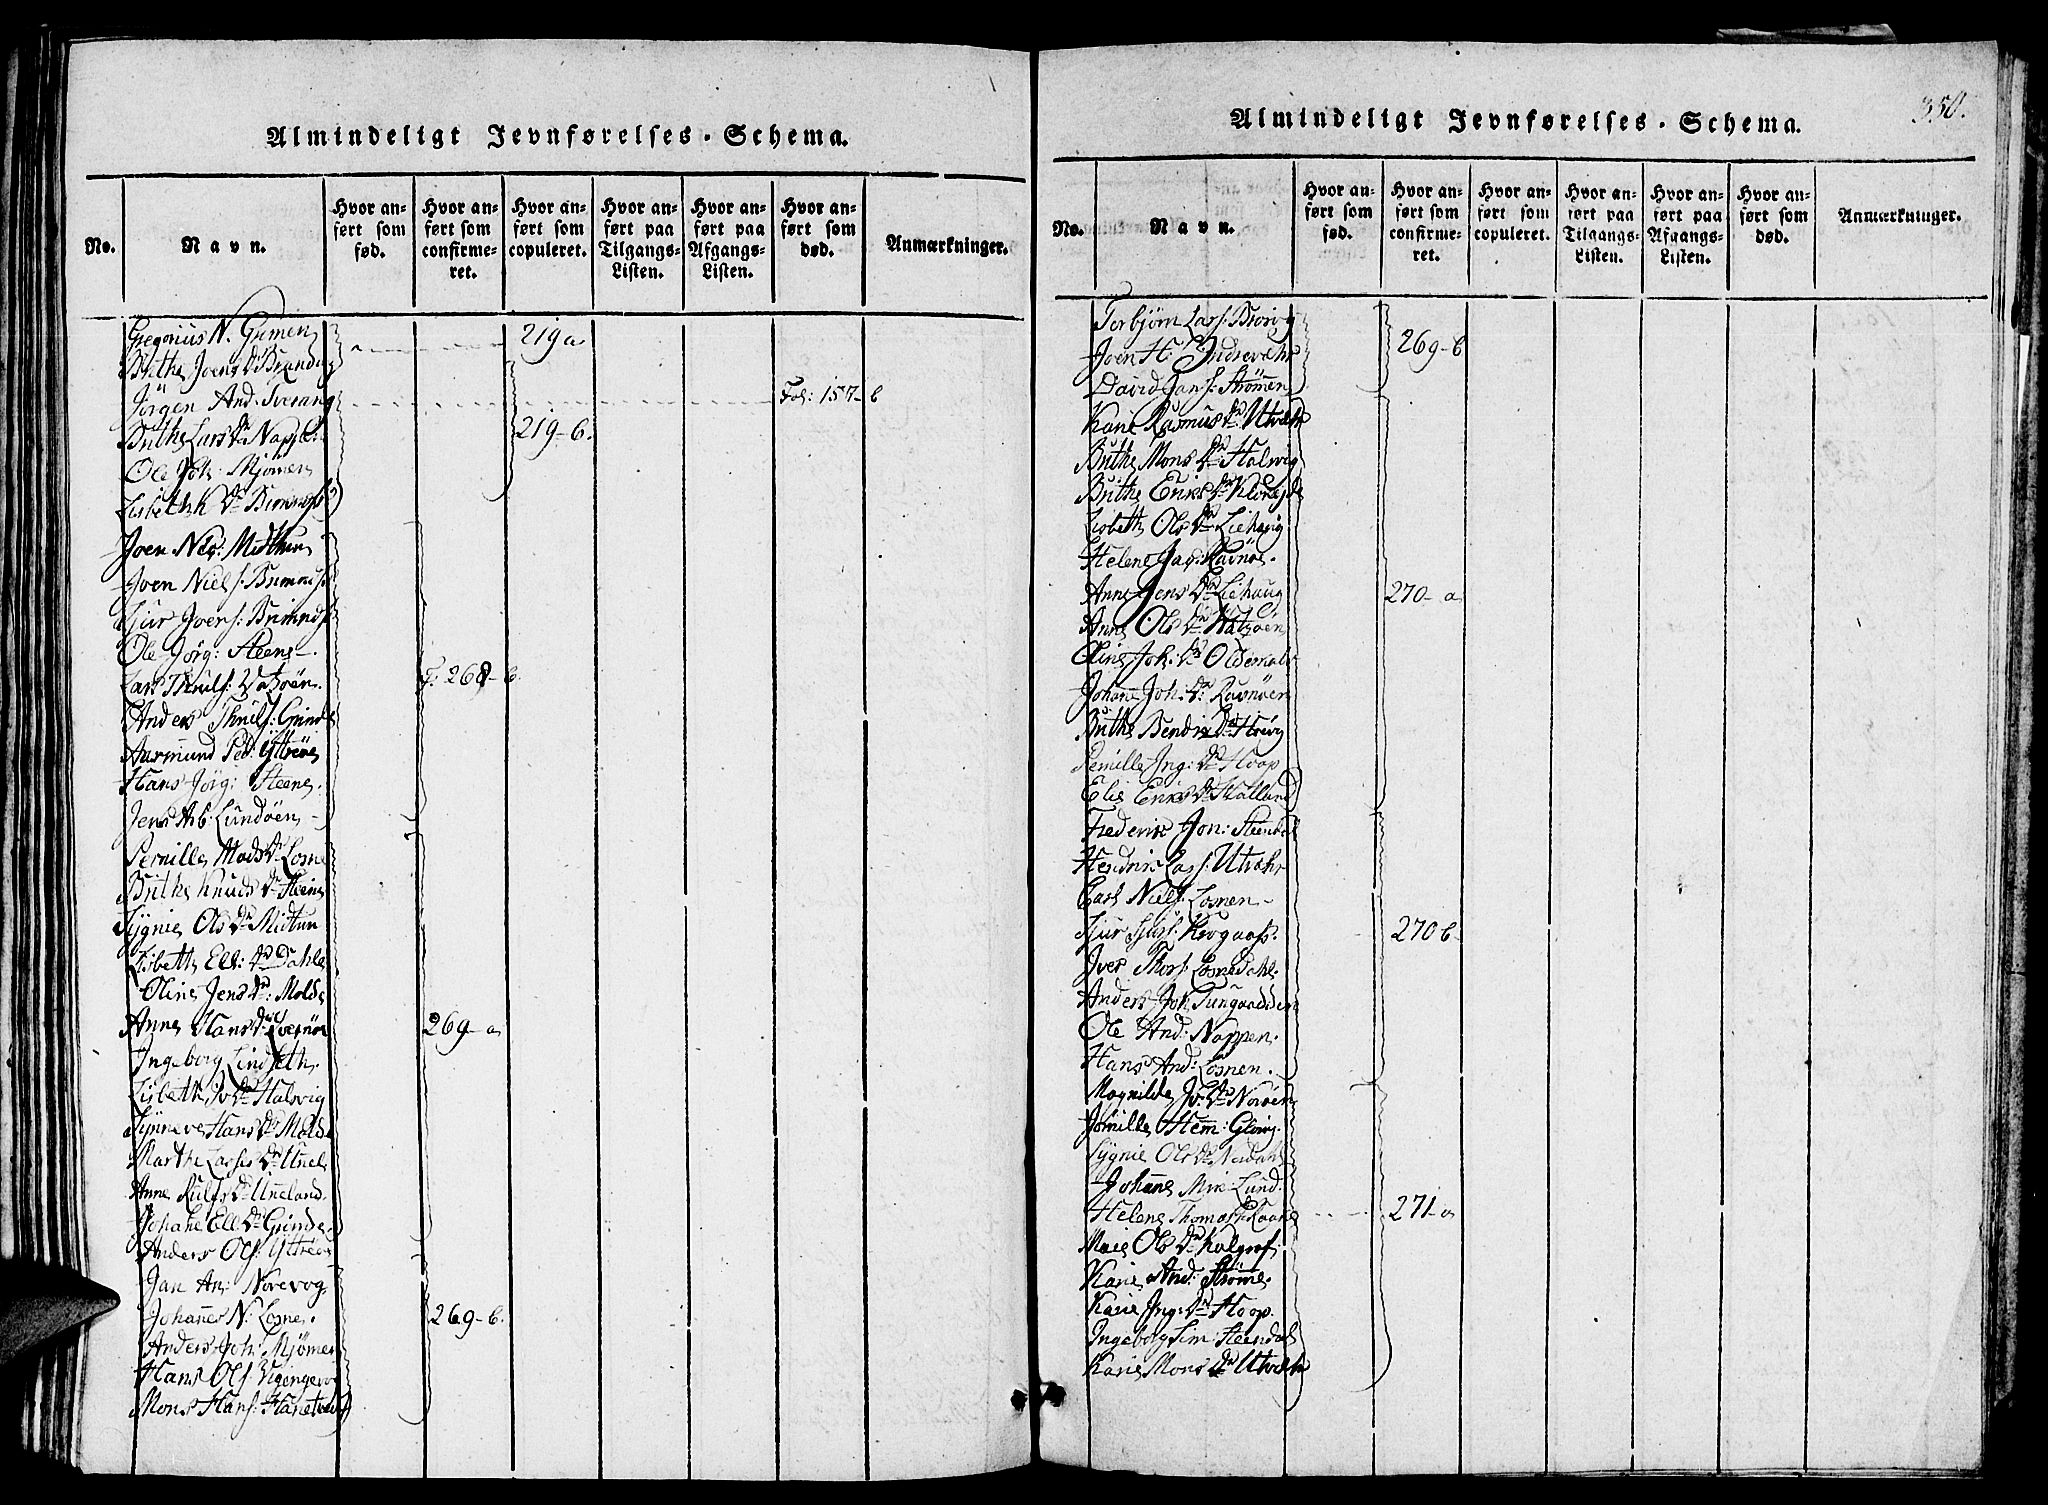 Almindeligt Jevnførelses-Schema.
No.
Navn.
Hvor anført som fød.
Hvor anført som confirmeret.
Hvor anført som copuleret.
Hvor anført paa Tilgangs-Listen.
Hvor anført paa Afgangs-Listen.
Hvor anført som død.
Anmærkninger.
Gregorius N. Grimen
219 a
Brithe Joens Dr Brandøy
Jörgen And. Tverang Fol: 157-b
Brithe Lars Dr Nappen 219-b.
Ole Joh: Mjömen
Lisbeth K Dr
Joen Nls: Midthun
Joen Niels: Brimnes
Sjur Joens: Brimnds
Ole Jörg: Steene.
Lars Thruls: Vatzöen. F. 268-b.
Anders Thruls: Grinde
Aasmund Ped: Yttröe
Hans Jörg: Steene.
Jens Asb: Lundöen
Pernille Mads Dr Losne
Brithe Knuds Dr Steine
Sygnie Ols Dr Midtun
Lisbeth Ell: Dr Dahle
Oline Jens Dr: Molde
Anne Hans Dr 269-a
Ingeborg Lindseth.
Lisbeth Iv: Dr Halvig
Synneve Hans Dr Molde
Marthe Lasses Dr Unel
Anne Rulfs Dr Uneland.
Johane Ell: Dr Grinde
Anders Ols: Yttröe
Jan An: Norevog
Johannes N: Losne. 269-b.
Anders Joh: Mjömen
Hans Ols:
Mons Hans:
350.
Almindeligt Jevnførelses-Schema.
No.
Navn.
Hvor anført som fød.
Hvor anført som confirmeret.
Hvor anført som copuleret.
Hvor anført paa Tilgangs-Listen.
Hvor anført paa Afgangs-Listen.
Hvor anført som død.
Anmærkninger.
Torbjörn Lars:
Joen H: Indrevær 269-b
David Jans: Strömmen
Karie Rasmus Dr Utvær
Brithe Mons Dr Halvig
Brithe Eriks Dr
Lisbeth Ols Dr Liehaug
Helene Jag: Ravnöe.
Anne Jens Dr Liehaug 270-a
Anne Ols Dr Watzöen
Oline Joh: Dr Oldermale
Johane Joh: Dr Ravnöen
Brithe Bendix Dr
Pernille Ing: Dr Hoop
Elie Eriks Dr Hatland
Frederik Jon: Steendal
Hendrik Lass: Utvæhr
Carl Niels: Losnen
Sjur Sjurs: Krogaas. 270 b-
Iver Thors: Losnedahl.
Anders Joh: Tungaadden
Ole And: Nappen.
Hans And: Losnen.
Magnilde Iv: Dr Noröen
Jornille Hem: Glosvig.
Sygnie Ols Dr Nesdahl
Johane Mik: Lund.
Helene Thomas Dr 271-a
Marie Ols Dr Kalgraf
Karie And: Strömme.
Karie Ing: Dr Hoop.
Ingeborg Sim: Steendal
Karie Mons Dr Utvær